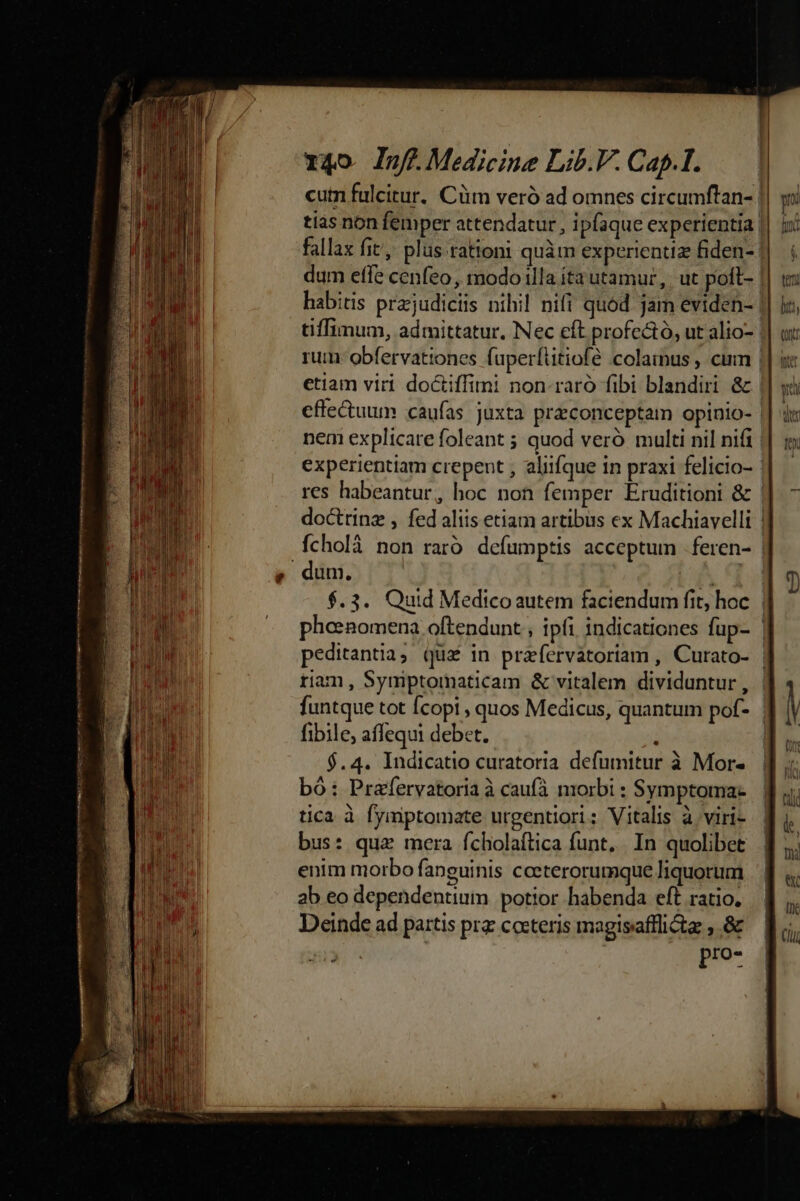 140 Inſt. Medicinæ Lib.V. Cap.I.
cum fulcitur. Cùm verò ad omnes circumſtan-
tias non ſemper attendatur, ipſaque experientia
fallax fit, plus rationi quàm experientiæ fiden-
dum eſſe cenſeo, modo illa ita utamur, ut poſt-
habitis præjudiciis nihil niſi quod jam eviden-
tiſſimum, admittatur. Nec eſt profectò, ut alio-
rum obſervationes ſuperſtitioſè colamus, cum
etiam viri doctiſſimi non raró ſibi blandiri &
effectuum cauſas juxta præconceptam opinio-
nem explicare ſoleant; quod verò multi nil niſi
experientiam crepent, aliiſque in praxi felicio-
res habeantur, hoc non ſemper Eruditioni &
doctrinæ, ſed aliis etiam artibus ex Machiavelli
ſcholâ non rarò deſumptis acceptum feren-
dum.
§.3. Quid Medico autem faciendum fit, hoc
phœnomena oſtendunt, ipſi indicationes ſup-
peditantia, quæ in præſervatoriam, Curato-
riam, Symptomaticam & vitalem dividuntur,
ſuntque tot ſcopi, quos Medicus, quantum poſ-
ſibile, aſſequi debet.
§.4. Indicatio curatoria deſumitur à Mor-
bò: Præſervatoria à cauſâ morbi: Symptoma-
tica à ſymptomate urgentiori: Vitalis à viri-
bus: quæ mera ſcholaſtica ſunt. In quolibet
enim morbo ſanguinis cœterorumque liquorum
ab eo dependentium potior habenda eſt ratio.
Deinde ad partis præ cœteris magis afflictæ, &
pro-